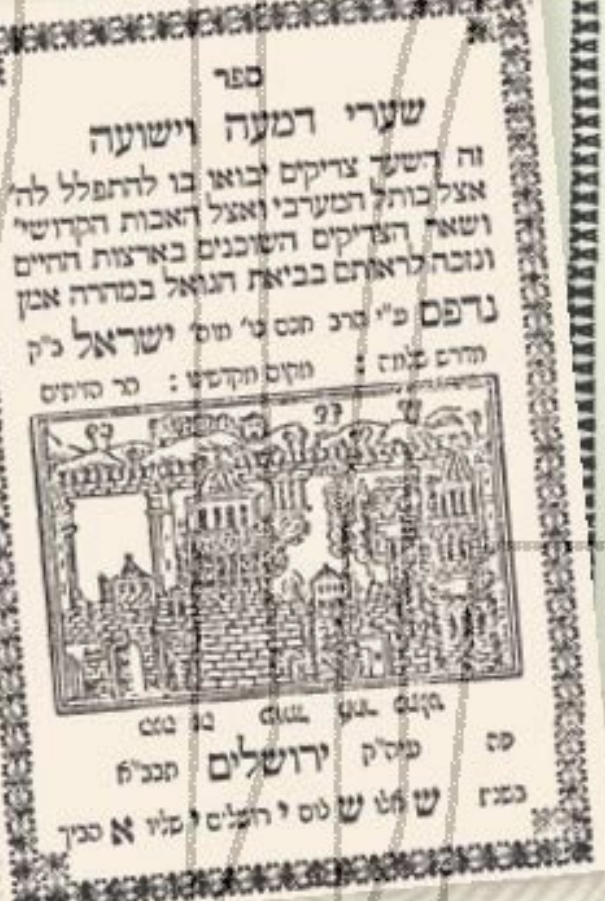 ספר
שערי דמעה וישועה
זה השער צדיקים יבואו בו להתפלל לה'
אצל כותל המערבי ואצל האבות הקדושי'
ושאר הצדיקים השוכנים בארצות החיים
ונזכה לראותם בביאת הגואל במהרה אמן
נדפס ע"י הרב חכם ישראל ב"ק
מדרש שלמה : מקום מקדשינו : הר הזיתים
פה עיה"ק ירושלים תבב"א
בשנת ש אלו ש לום י רושלים י שליו א הביך